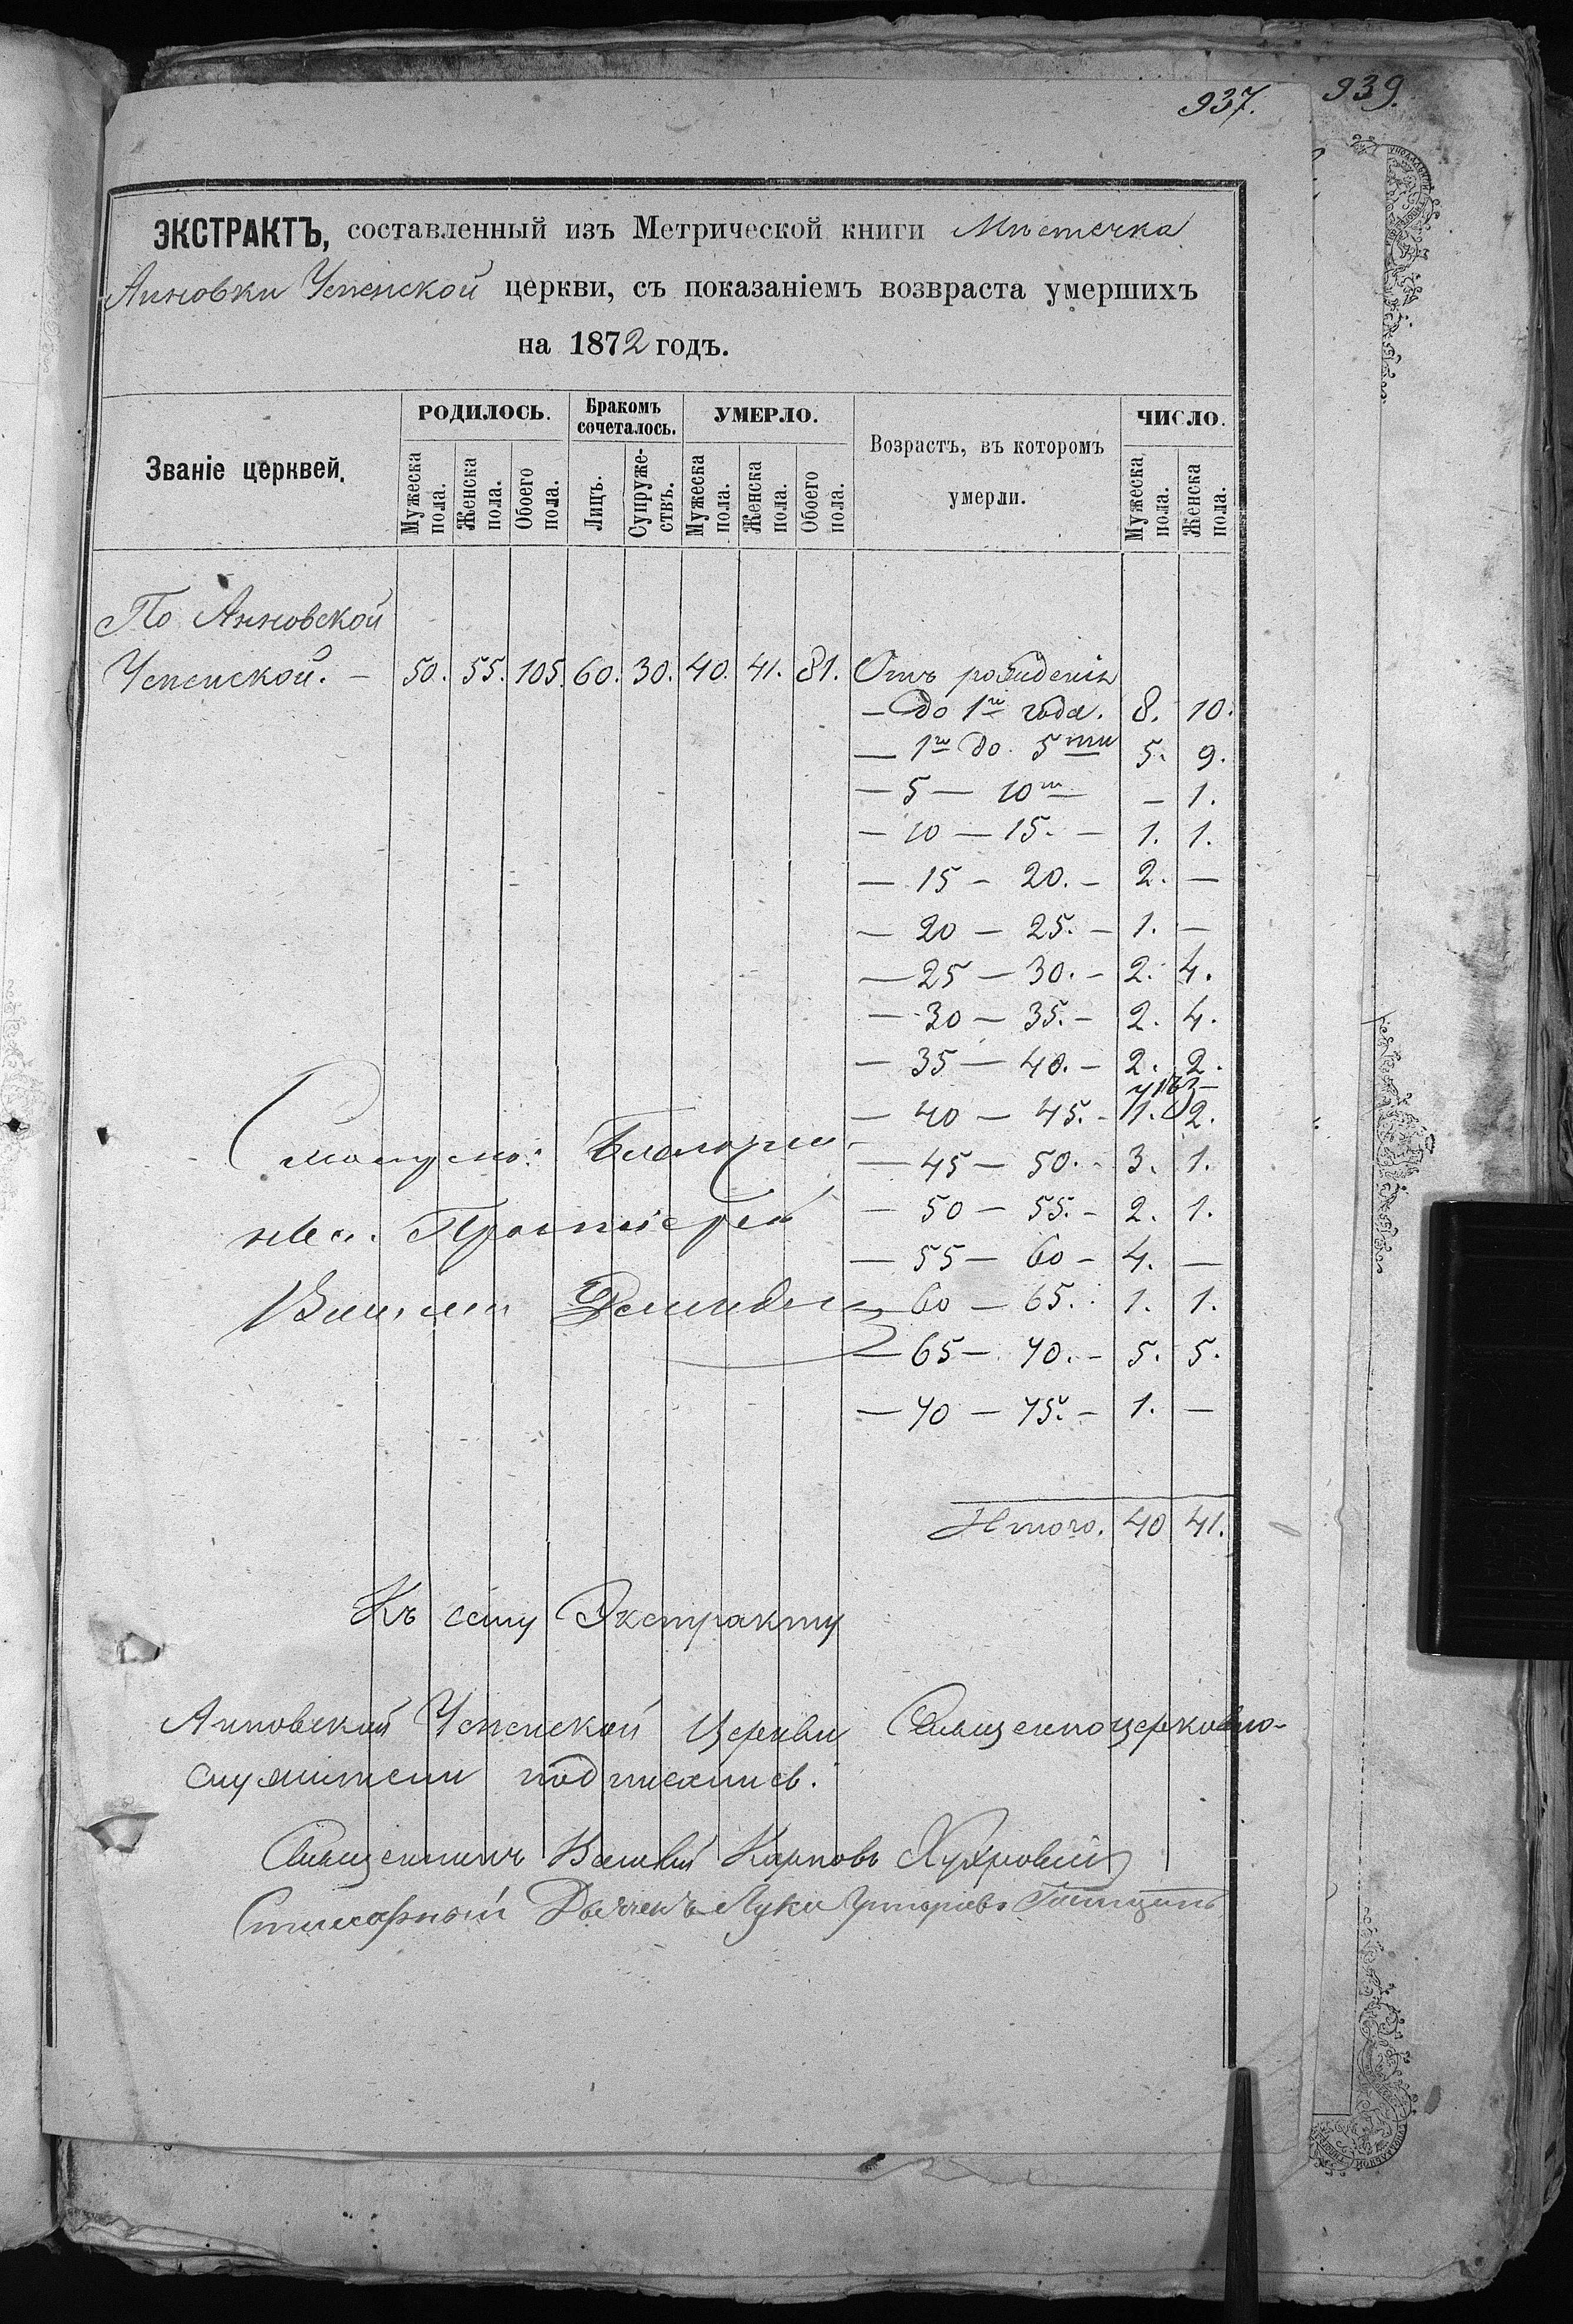 937.
939.
ЭКСТРАКТЪ, составленный изъ Метрической книги Мѣстечка
Анновки Успенской церкви, съ показаніемъ возвраста умершихъ
на 1872 годъ.
Званіе церквей.
РОДИЛОСЬ.
Мужеска пола.
Женска пола.
Обоего пола.
Бракомъ сочеталось.
Лицъ.
Супружествъ.
УМЕРЛО.
Мужеска пола.
Женска пола.
Обоего пола.
Возрастъ, въ которомъ умерли.
ЧИСЛО.
Мужеска пола.
Женска пола.
По Анновской
Успенской. — 50. 55. 105. 60. 30. 40. 41. 81. Отъ рожденія
— до 1го года. 8. 10.
— 1го до 5ти 5. 9.
— 5 — 10ти — 1.
— 10 — 15. — 1. 1.
— 15 — 20. — 2. —
— 20 — 25. — 1. —
— 25 — 30. — 2. 4.
— 30 — 35. — 2. 4.
— 35 — 40. — 2. 2.
— 40 — 45. — 1. 2.
— 45 — 50. — 3. 1.
— 50 — 55. — 2. 1.
— 55 — 60 — 4. —
— 60 — 65. 1. 1.
— 65 — 70. — 5. 5.
— 70 — 75. — 1. —
Итого. 40 41.
Протоіерей
Къ сему Экстракту
Анновской Успенской Церкви Священноцерковно-
служители подписались.
Священникъ Василій Карповъ
Дьячекъ Лука Григорьевъ